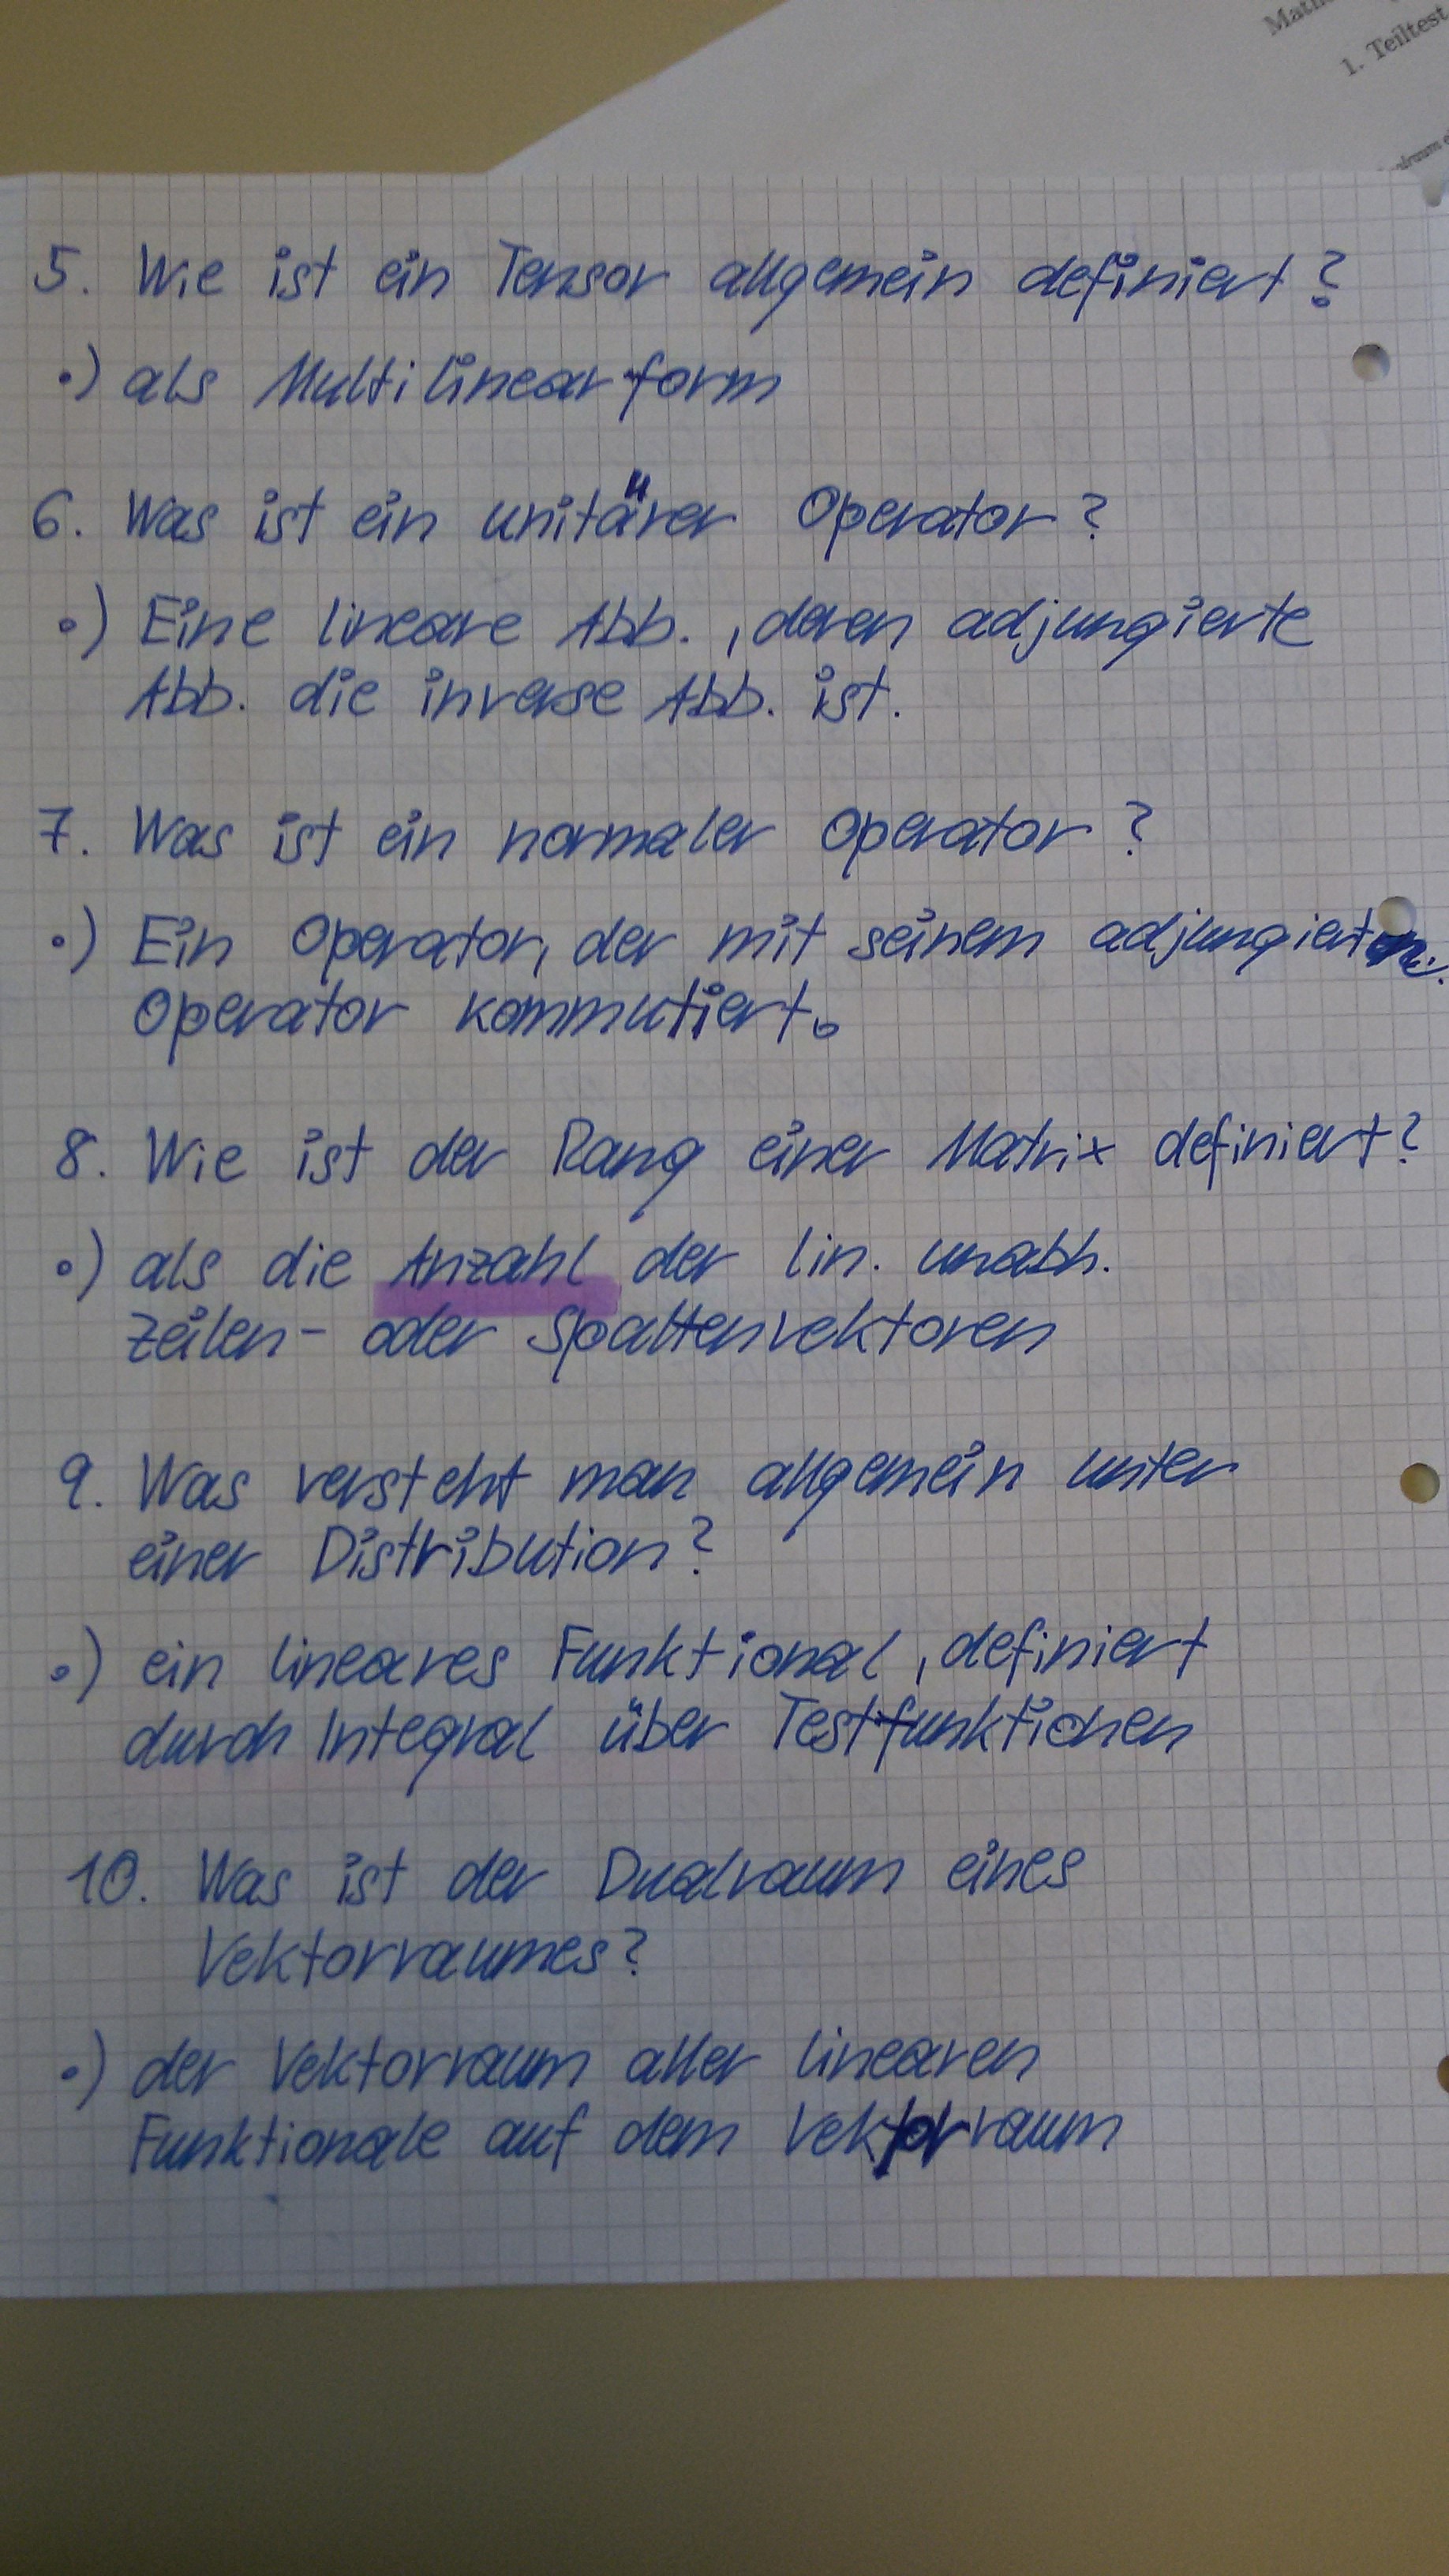 1. Teiltest
5. Wie ist ein Tensor allgemein definiert?
•) als Multilinearform
6. Was ist ein unitärer Operator?
•) Eine lineare Abb., deren adjungierte
Abb. die inverse Abb. ist.
7. Was ist ein normaler Operator?
•) Ein Operator, der mit seinem adjungierten
Operator kommutiert.
8. Wie ist der Rang einer Matrix definiert?
•) als die Anzahl der lin. unabh.
Zeilen- oder Spaltenvektoren
9. Was versteht man allgemein unter
einer Distribution?
•) ein lineares Funktional, definiert
durch Integral über Testfunktionen
10. Was ist der Dualraum eines
Vektorraumes?
•) der Vektorraum aller linearen
Funktionale auf dem Vektorraum